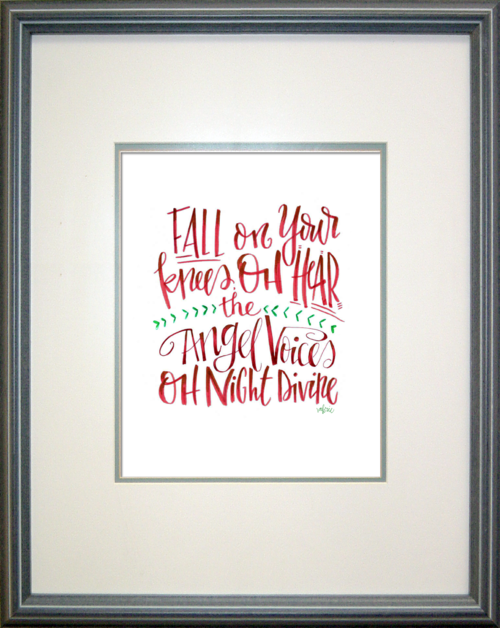 FALL on Your
knees. OH HEAR
the
Angel Voices
OH Night Divine